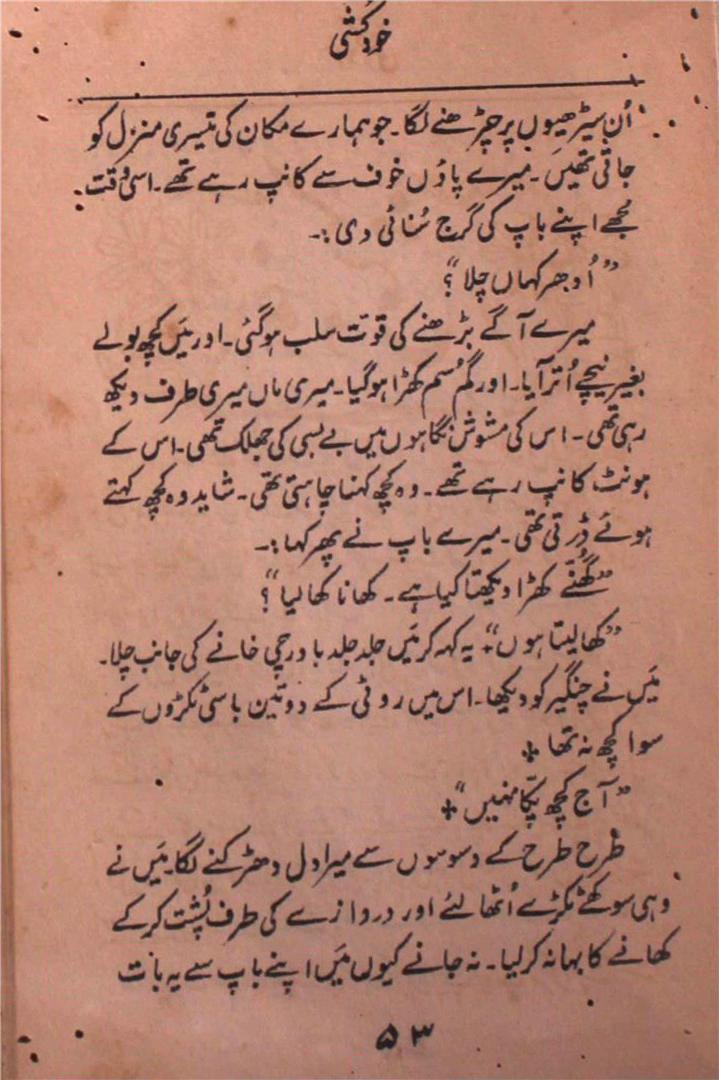 خودکشی
اُن سیڑھیوں پر چڑھنے لگا۔ جو ہمارے مکان کی تیسری منزل کو
جاتی تھیں۔ میرے پاؤں خوف سے کانپ رہے تھے۔ اسی وقت
مُجھے اپنے باپ کی گرج سُنائی دی :۔
”اُدھر کہاں چلا“؟
میرے آگے بڑھنے کی قوّت سلب ہوگئی۔ اور مَیں کچھ بولے
بغیر نیچے اُتر آیا۔ اور گُم سُم کھڑا ہوگیا۔ میری ماں میری طرف دیکھ
رہی تھی۔ اس کی مشوش نگاہوں میں بے بسی کی جھلک تھی۔ اس کے
ہونٹ کانپ رہے تھے۔ وہ کچھ کہنا چاہتی تھی۔ شاید وہ کچھ کہتے
ہوئے ڈرتی تھی۔ میرے باپ نے پھر کہا :۔
”گھُنّے کھڑا دیکھتا کیا ہے۔ کھانا کھا لیا“؟
”کھا لیتا ہوں“، یہ کہہ کر مَیں جلد جلد باورچی خانے کی جانب چلا۔
مَیں نے چنگیر کو دیکھا۔ اس میں روٹی کے دو تین باسی ٹکڑوں کے
سوا کچھ نہ تھا +
”آج کچھ پکّا نہیں“ +
طرح طرح کے وسوسوں سے میرا دل دھڑکنے لگا۔ مَیں نے
وہی سوکھے ٹکڑے اُٹھا لئے اور دروازے کی طرف پُشت کر کے
کھانے کا بہانہ کر لیا۔ نہ جانے کیوں مَیں اپنے باپ سے یہ بات
۵۳